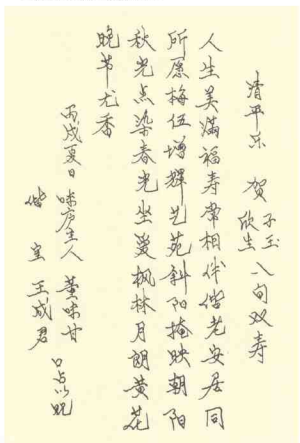 清平乐 贺 子玉 欣生 八旬双寿
人生美满福寿常相伴偕老安居同
所愿梅伍增辉艺苑斜阳掩映朝阳
秋光点染春光坐爱枫林月朗黄花
晚节尤香
丙戌夏日 味广主人 黄味甘
偕室 王成君 口占以贶